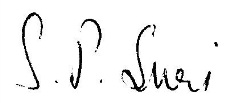 S. P. Suri